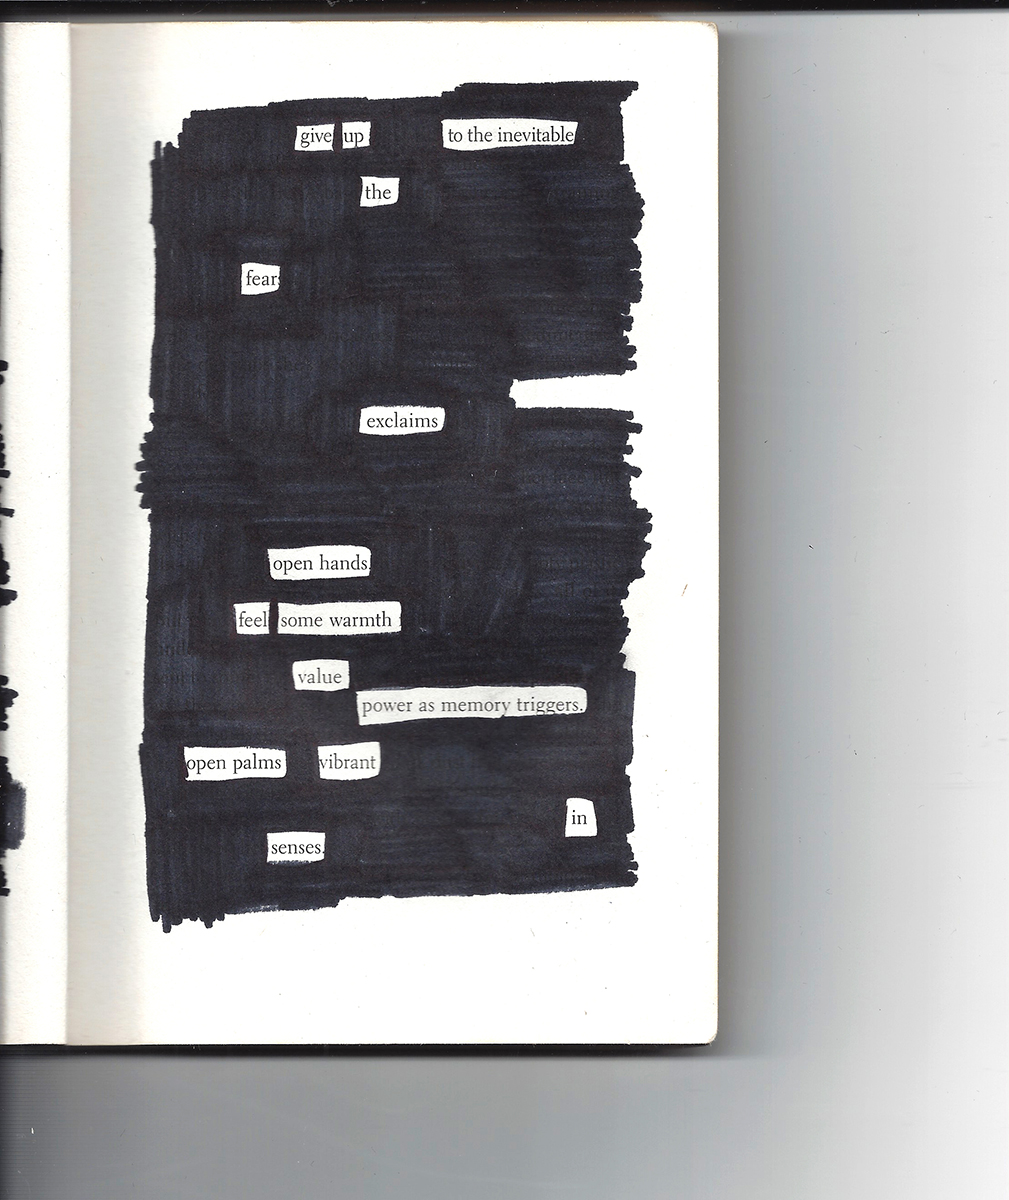 give up to the inevitable
the
fear
exclaims
open hands
feel some warmth
value
power as memory triggers.
open palms vibrant
in
senses.